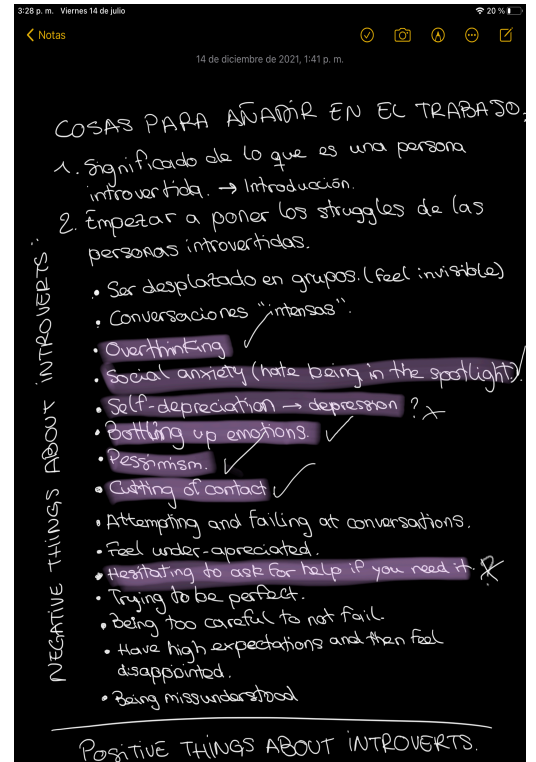 3:28 p. m. Viernes 14 de julio
20 %
Notas
14 de diciembre de 2021, 1:41 p. m.
COSAS PARA AÑADIR EN EL TRABAJO.
1. Significado de lo que es una persona
introvertida. → Introducción.
2. Empezar a poner los struggles de las
personas introvertidas.
NEGATIVE THINGS ABOUT INTROVERTS:
• Ser desplazado en grupos. (feel invisible)
• Conversaciones "intensas".
• Overthinking ✓
• Social anxiety (hate being in the spotlight) ✓
• Self-depreciation → depression ? x
• Bottling up emotions. ✓
• Pessimism. ✓
• Cutting of contact ✓
• Attempting and failing at conversations.
• Feel under-apreciated.
• Hesitating to ask for help if you need it.
• Trying to be perfect.
• Being too careful to not fail.
• Have high expectations and then feel
disappointed.
• Being missunderstood
POSITIVE THINGS ABOUT INTROVERTS.